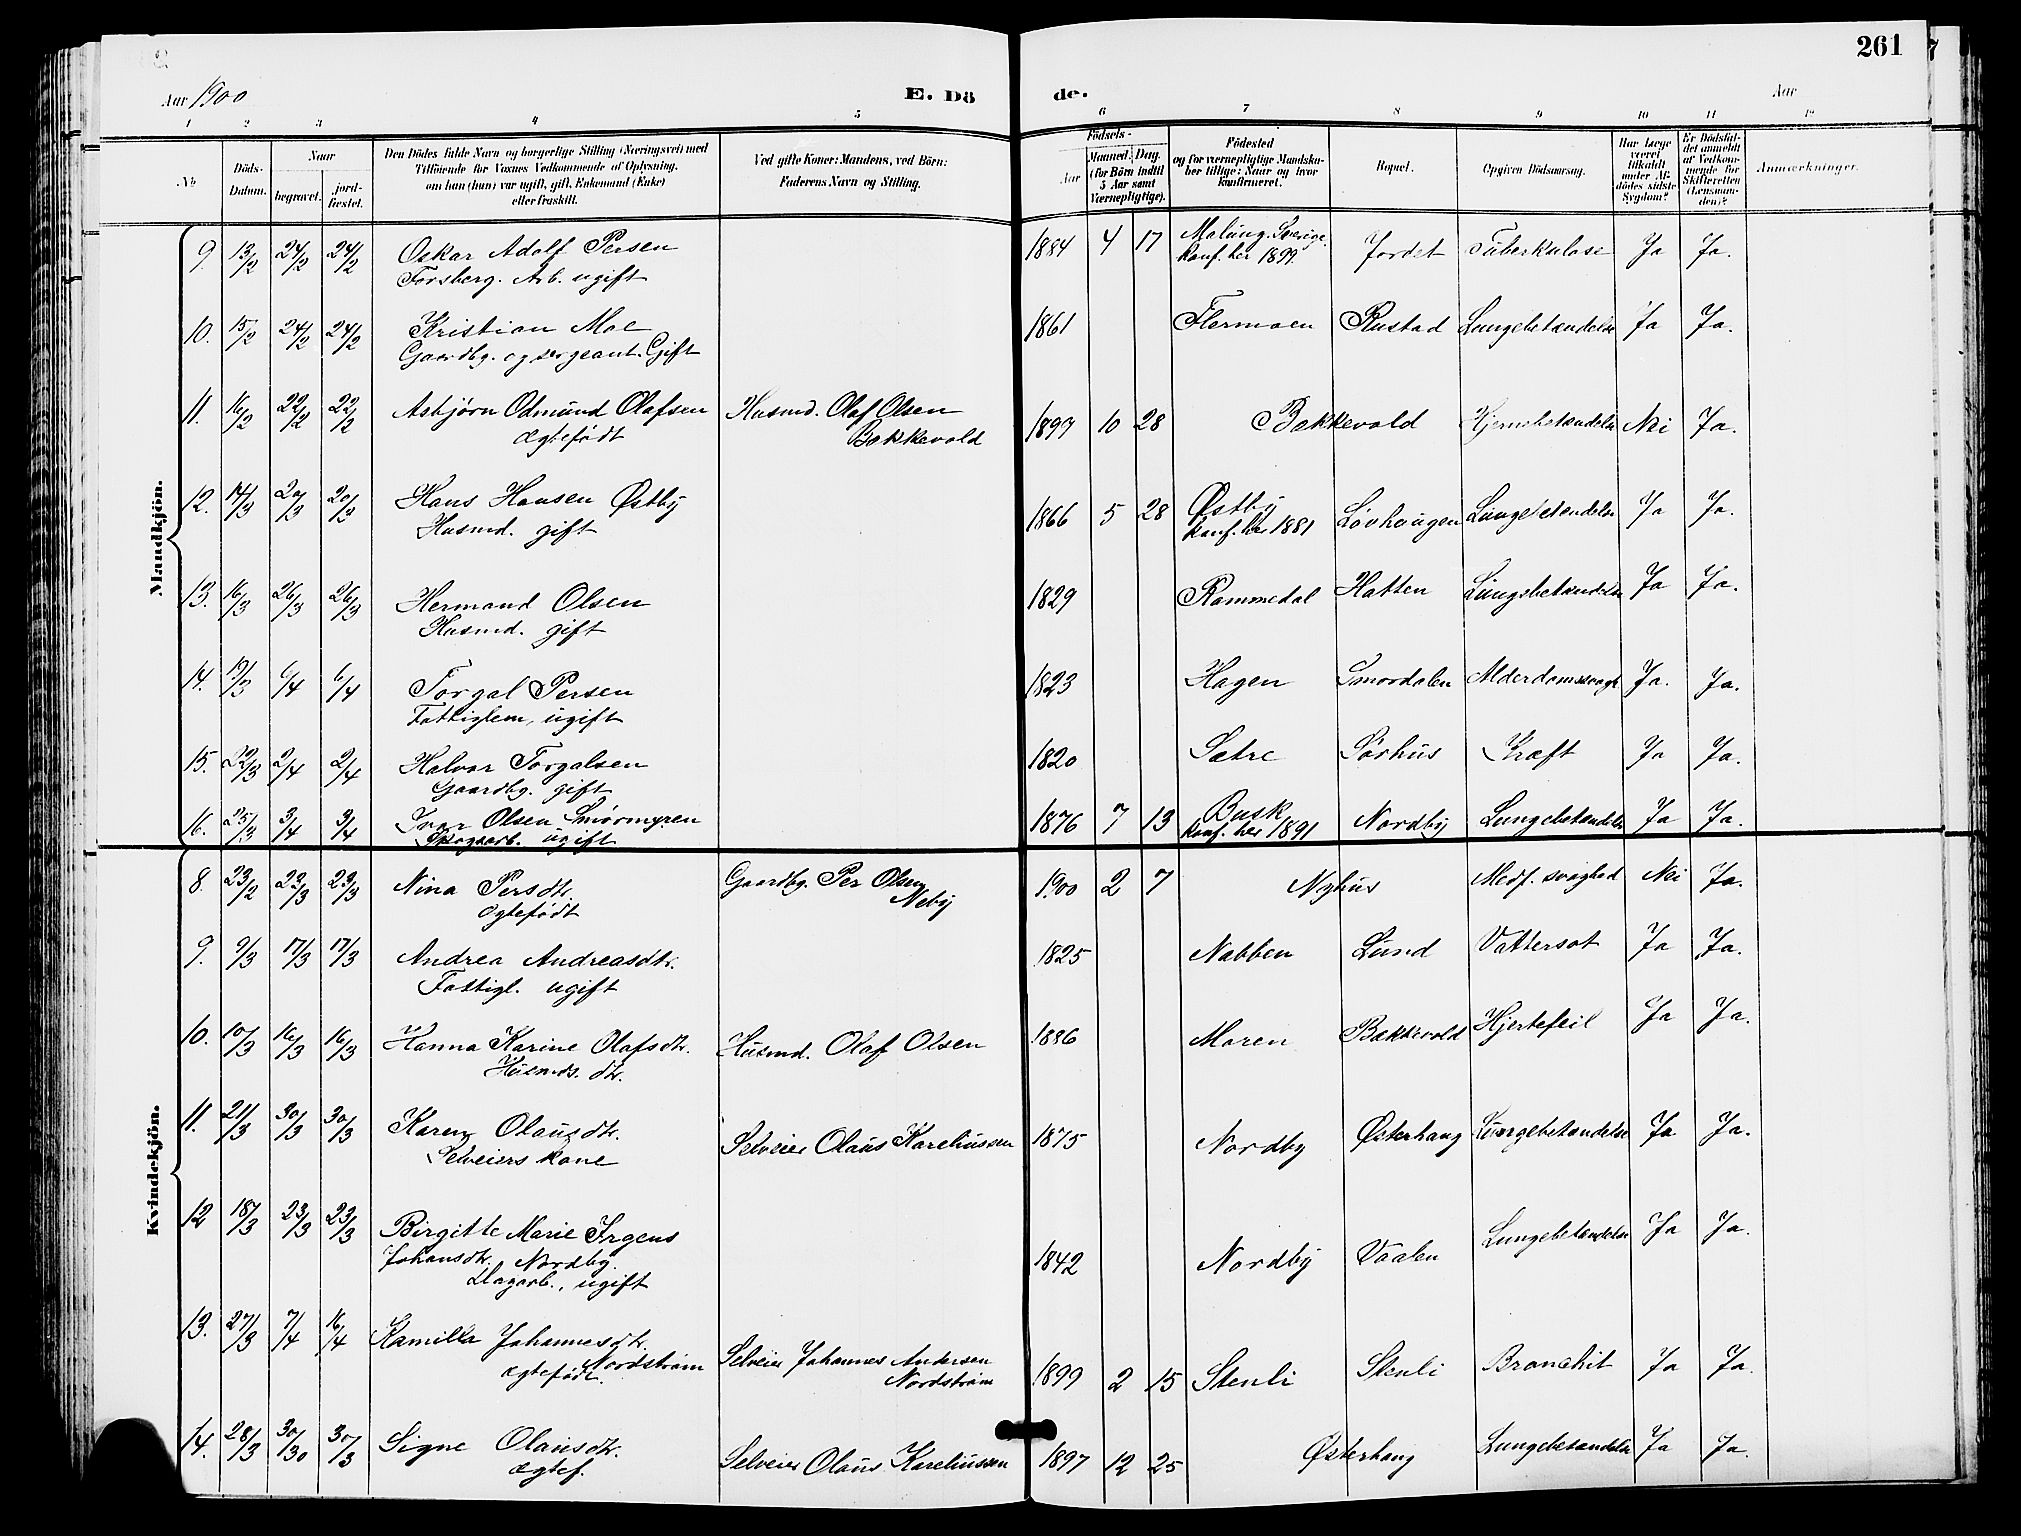 261
Aar 1900 E. Dö de. Aar
1 2 3 4 5 6 7 8 9 10 11 12
No
Döds-Datum.
Naar
begravet.
jord-fæstet.
Den Dödes fulde Navn og borgerlige Stilling (Næringsvei) med
Tilföiende for Voxnes Vedkommende af Oplysning,
om han (hun) var ugift, gift, Enkemand (Enke)
eller fraskilt.
Ved gifte Koner: Mandens, ved Börn:
Faderens Navn og Stilling.
Födsels-
Aar
Maaned. Dag.
(for Börn indtil
5 Aar samt
Værnepligtige).
Födested
og for værnepligtige Mandska-
ber tillige: Naar og hvor
konfirmeret.
Bopæl.
Opgiven Dödsaarsag.
Har Læge
været
tilkaldt
under Af-
dödes sidste
Sygdom?
Er Dödsfal-
det anmeldt
af Vedkom-
mende for
Skifteretten
(Lensman-
den)?
Anmærkninger.
Mandkjön.
9. 13/2 24/2 24/2 Oskar Adolf Persen 1884 4 17 Malung. Sverige. Jordet Tuberkulose Ja Ja.
Forsberg. Arb. ugift konf. her 1899.
10. 15/2 24/2 24/2 Kristian Moe 1861 Flermoen Rustad Lungebetændelse Ja Ja.
Gaardbg. og sergeant. Gift
11. 16/2 22/2 22/2 Asbjørn Odmund Olafsen Husmd. Olaf Olsen 1897 10 28 Bakkevold Hjernebetændelse Nei Ja.
ægtefødt Bakkevold
12. 14/3 20/3 20/3 Hans Hansen Østby 1866 5 28 Østby Løvhaugen Lungebetændelse Ja Ja.
Husmd. gift konf. her 1881
13. 16/3 26/3 26/3 Hermand Olsen 1829 Rammedal Hatten Lungebetændelse Ja Ja.
Husmd. gift
14. 19/3 6/4 6/4 Torgal Persen 1823 Hagen Smordalen Alderdomssvagh Ja. Ja.
Fattiglem, ugift
15. 22/3 2/4 2/4 Halvor Torgalsen 1820 Sætre Sørhus Kræft Ja Ja.
Gaardbg. gift
16. 25/3 3/4 3/4 Ivar Olsen Smørmyren 1876 7 13 Busk Nordby Lungebetændelse Ja Ja.
Skogsarb. ugift konf. her 1891
Kvindekjön.
8. 23/2 23/3 23/3 Nina Persdtr. Gaardbg. Per Olsen 1900 2 7 Nyhus Medf. svaghed Nei Ja.
ægtefødt Neby
9. 9/3 17/3 17/3 Andrea Andreasdtr. 1825 Nabben Lund Vattersot Ja Ja.
Fattigl. ugift
10. 10/3 16/3 16/3 Hanna Karine Olafsdtr. Husmd. Olaf Olsen 1886 Moren Bakkevold Hjertefeil Ja Ja.
Husmds. dtr.
11. 21/3 30/3 30/3 Karen Olausdtr. Selveier Olaus Kareliussen 1875 Nordby Østerhaug Lungebetændelse Ja Ja.
Selveiers kone
12 18/3 23/3 23/3 Birgitte Marie Irgens 1842 Nordby Vaalen Lungebetændelse Ja Ja.
Johansdtr. Nordby.
Dagarb., ugift
13. 27/3 7/4 16/4 Kamilla Johannesdtr. Selveier Johannes Andersen 1899 2 15 Stenli Stenli Bronchit Ja Ja.
Nordstrøm Nordstrøm
ægtefødt.
14. 28/3 30/30 30/3 Signe Olausdtr. Selveier Olaus Kareliussen 1897 12 25 Østerhaug Lungebetændelse Ja Ja.
ægtef.